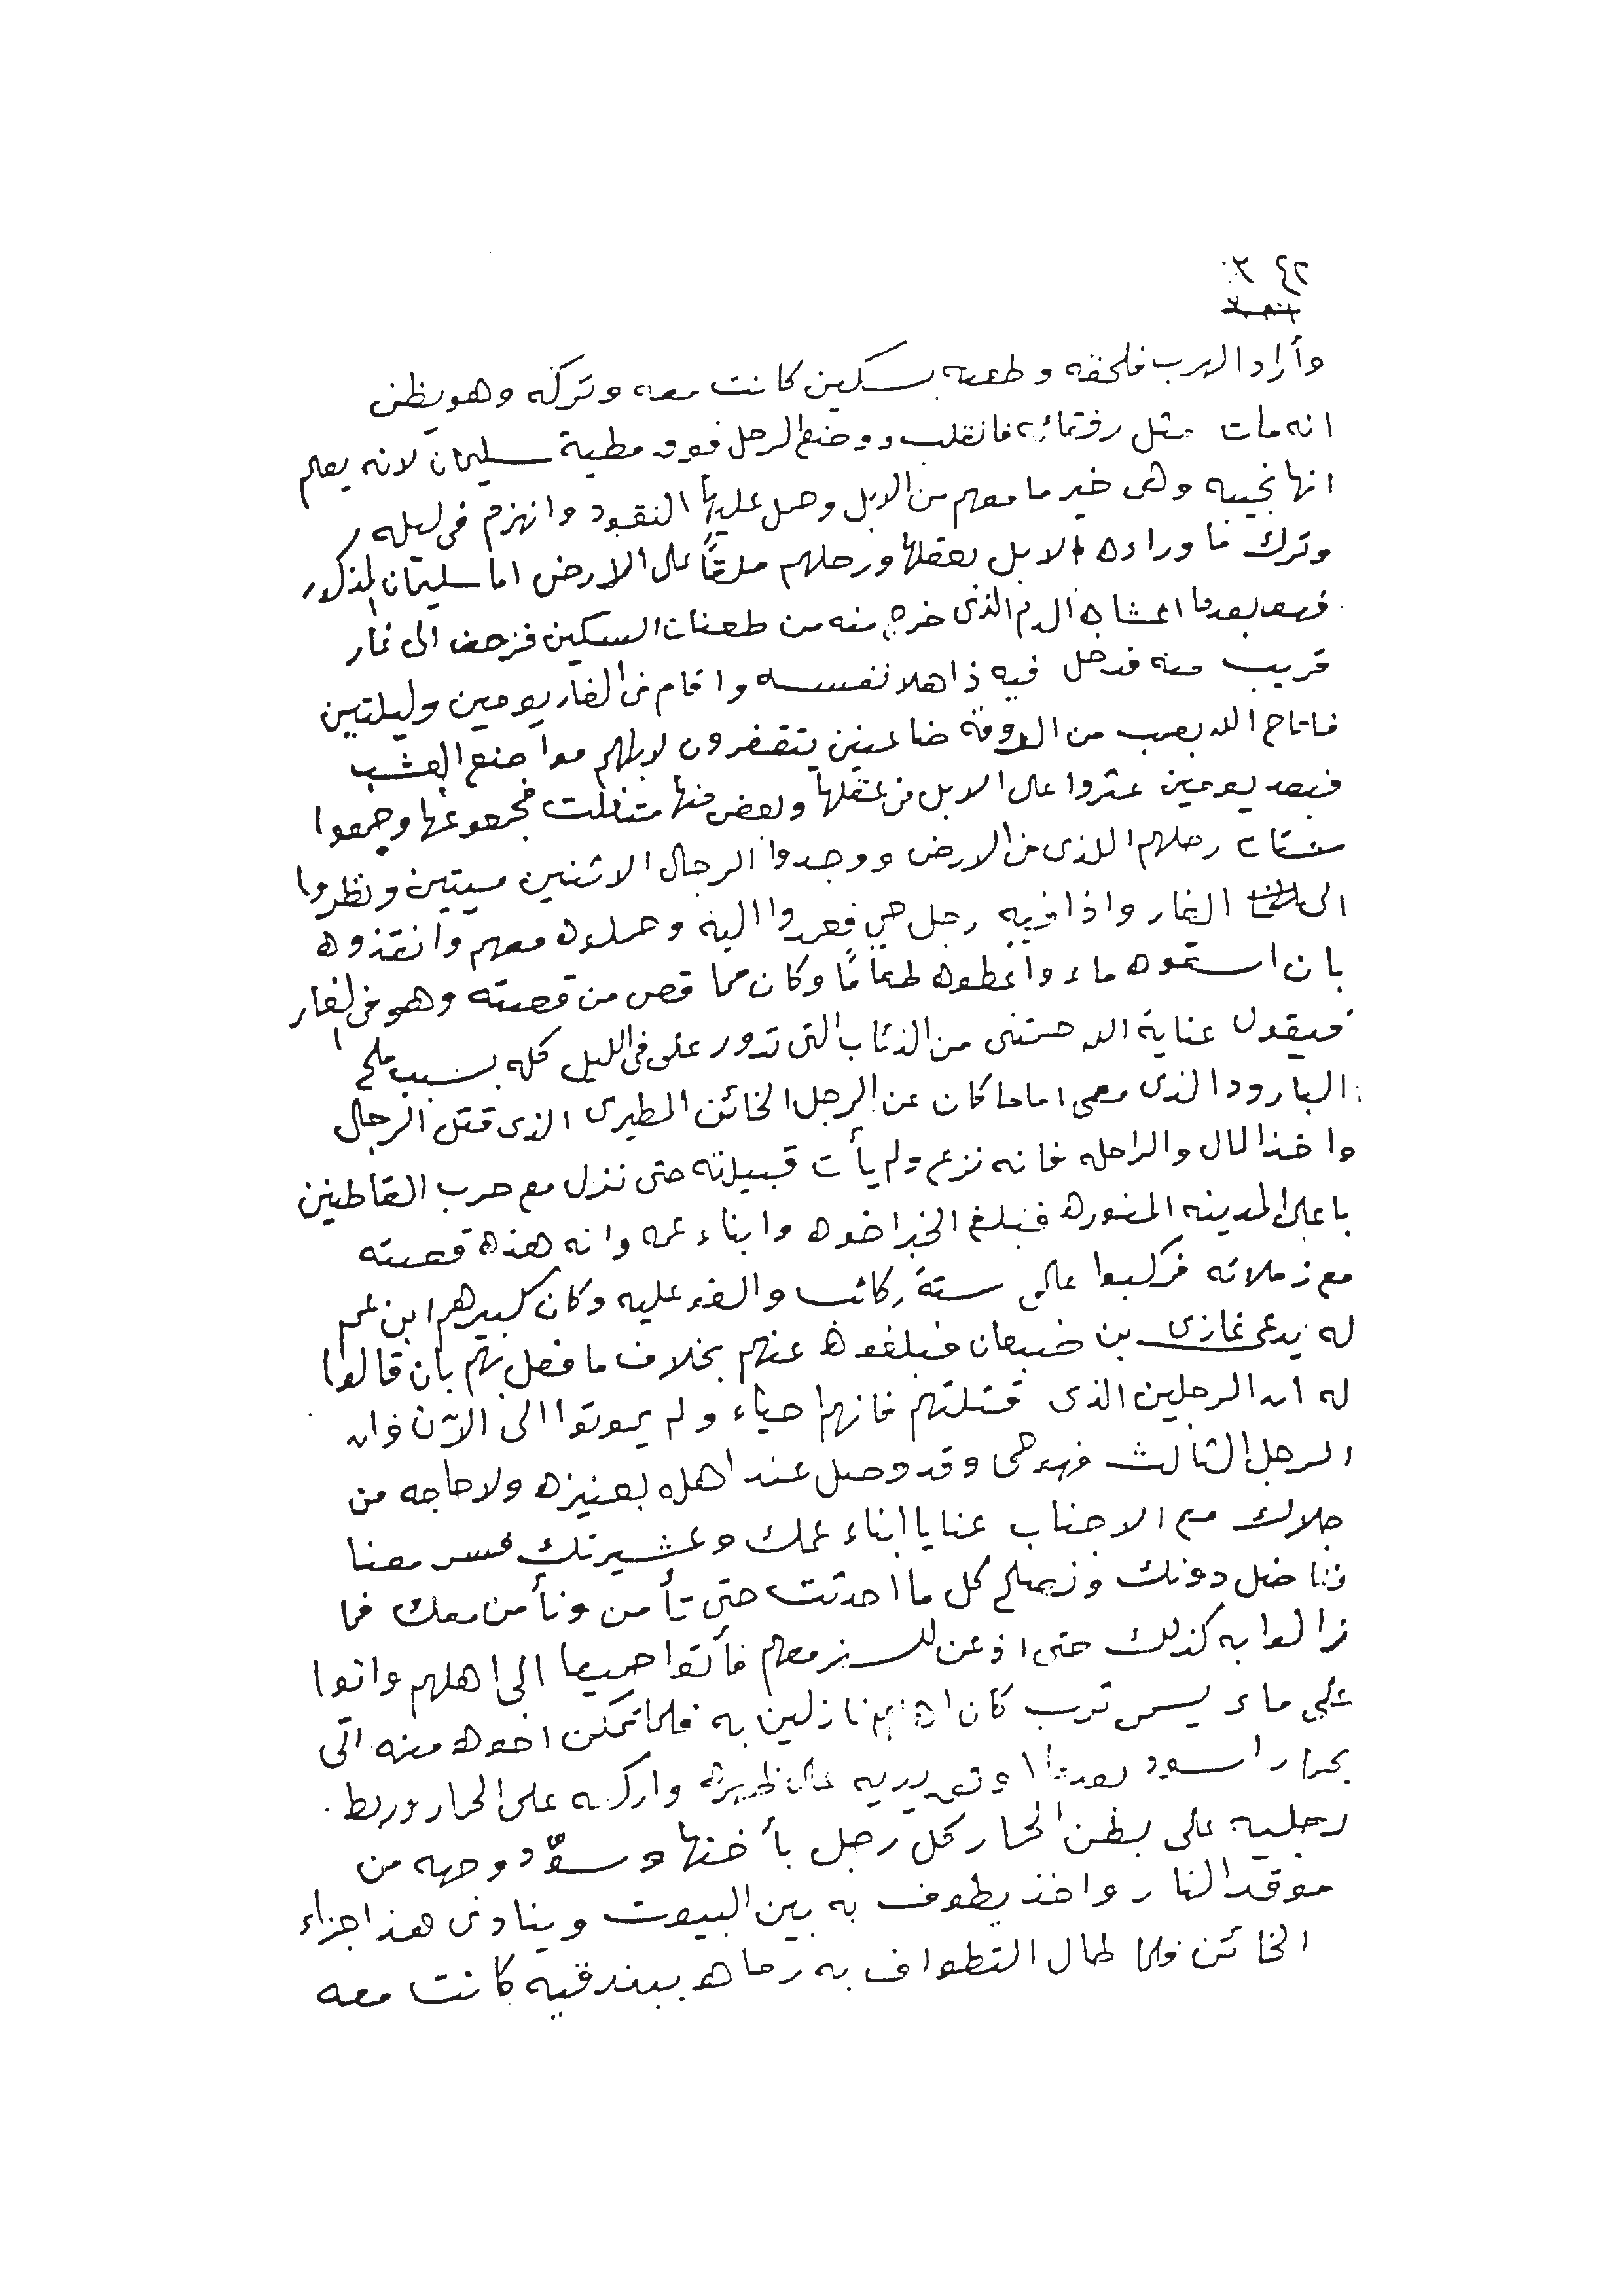 ٣٤٢
وأراد الهرب فلحقه وطعنه بسكين كانت معه وتركه وهو يظن
انه مات مثل رفقائه فانقلب ووضع الرحل فوق مطية سليمان لانه يعلم
انها نجيبه وهي خير ما معهم من الابل وحمل عليها النقود وانهزم في ليله
وترك ما وراءه الابل بعقلها ورحلهم ملقاً على الارض اما سليمان المذكور
فهو بعدما الدم الذي خرج منه من طعنات السكين فزحف الى غار
قريب منه فدخل فيه ذاهلا نفسه واقام في الغار يومين وليلتين
فاتاح الله بعرب من الروقة ضاعنين يتقفرون لابلهم مواضع العشب
فبعد يومين عثروا على الابل في عقلها وبعض منها متفللت فجمعوها وجمعوا
شتات رحلهم اللذي في الارض ووجدوا الرجال الاثنين ميتين ونظروا
الى الغار واذا فيه رجل حي فعمدوا اليه وحملوه معهم وانقذوه
بان اسقوه ماء واعطوه طعاماً وكان مما قص من قصته وهو في الغار
فيقول عناية الله حمتني من الذئاب التي تدور علي في الليل كله بسبب ملح
البارود الذي معي اما ما كان عن الرجل الخائن المطيري الذي قتل الرجال
واخذ المال والراحله فانه نزح ولم يأت قبيلته حتى نزل مع حرب القاطنين
باعلى المدينه المنوره فبلغ الخبر اخوه وابناء عمه وانه هذه قصته
مع زملائه فركبوا على ستة ركائب والفو عليه وكان كبيرهم ابن عم
له يدعى غازي بن ضبعان فبلغوه عنهم بخلاف ما فعل بهم بان قالوا
له ان الرجلين الذي قتلتهم فانهم احياء ولم يموتوا الى الآن وان
الرجل الثالث فهو حي وقد وصل عند اهله بعنيزه ولا حاجه من
جلاك مع الاجناب عنا يا ابناء عمك وعشيرتك فسر معنا
نناضل دونك ونصلح كل ما احدثت حتى تأمن ونأمن معك فما
زالوا به كذلك حتى اذعن للسير معهم فأتوا جميعا الى اهلهم واتوا
على ماء يسمى ترب كان اهلهم نازلين به فلما تمكن اخوه منه اتى
بحمار اسود يديه على ظهره واركبه على الحمار وربط
رجليه على بطن الحمار كل رجل بأختها وسوّد وجهه من
موقد النار واخذ يطوف به بين البيوت وينادي هذا جزاء
الخائن فلما طال التطواف به رماه ببندقيه كانت معه